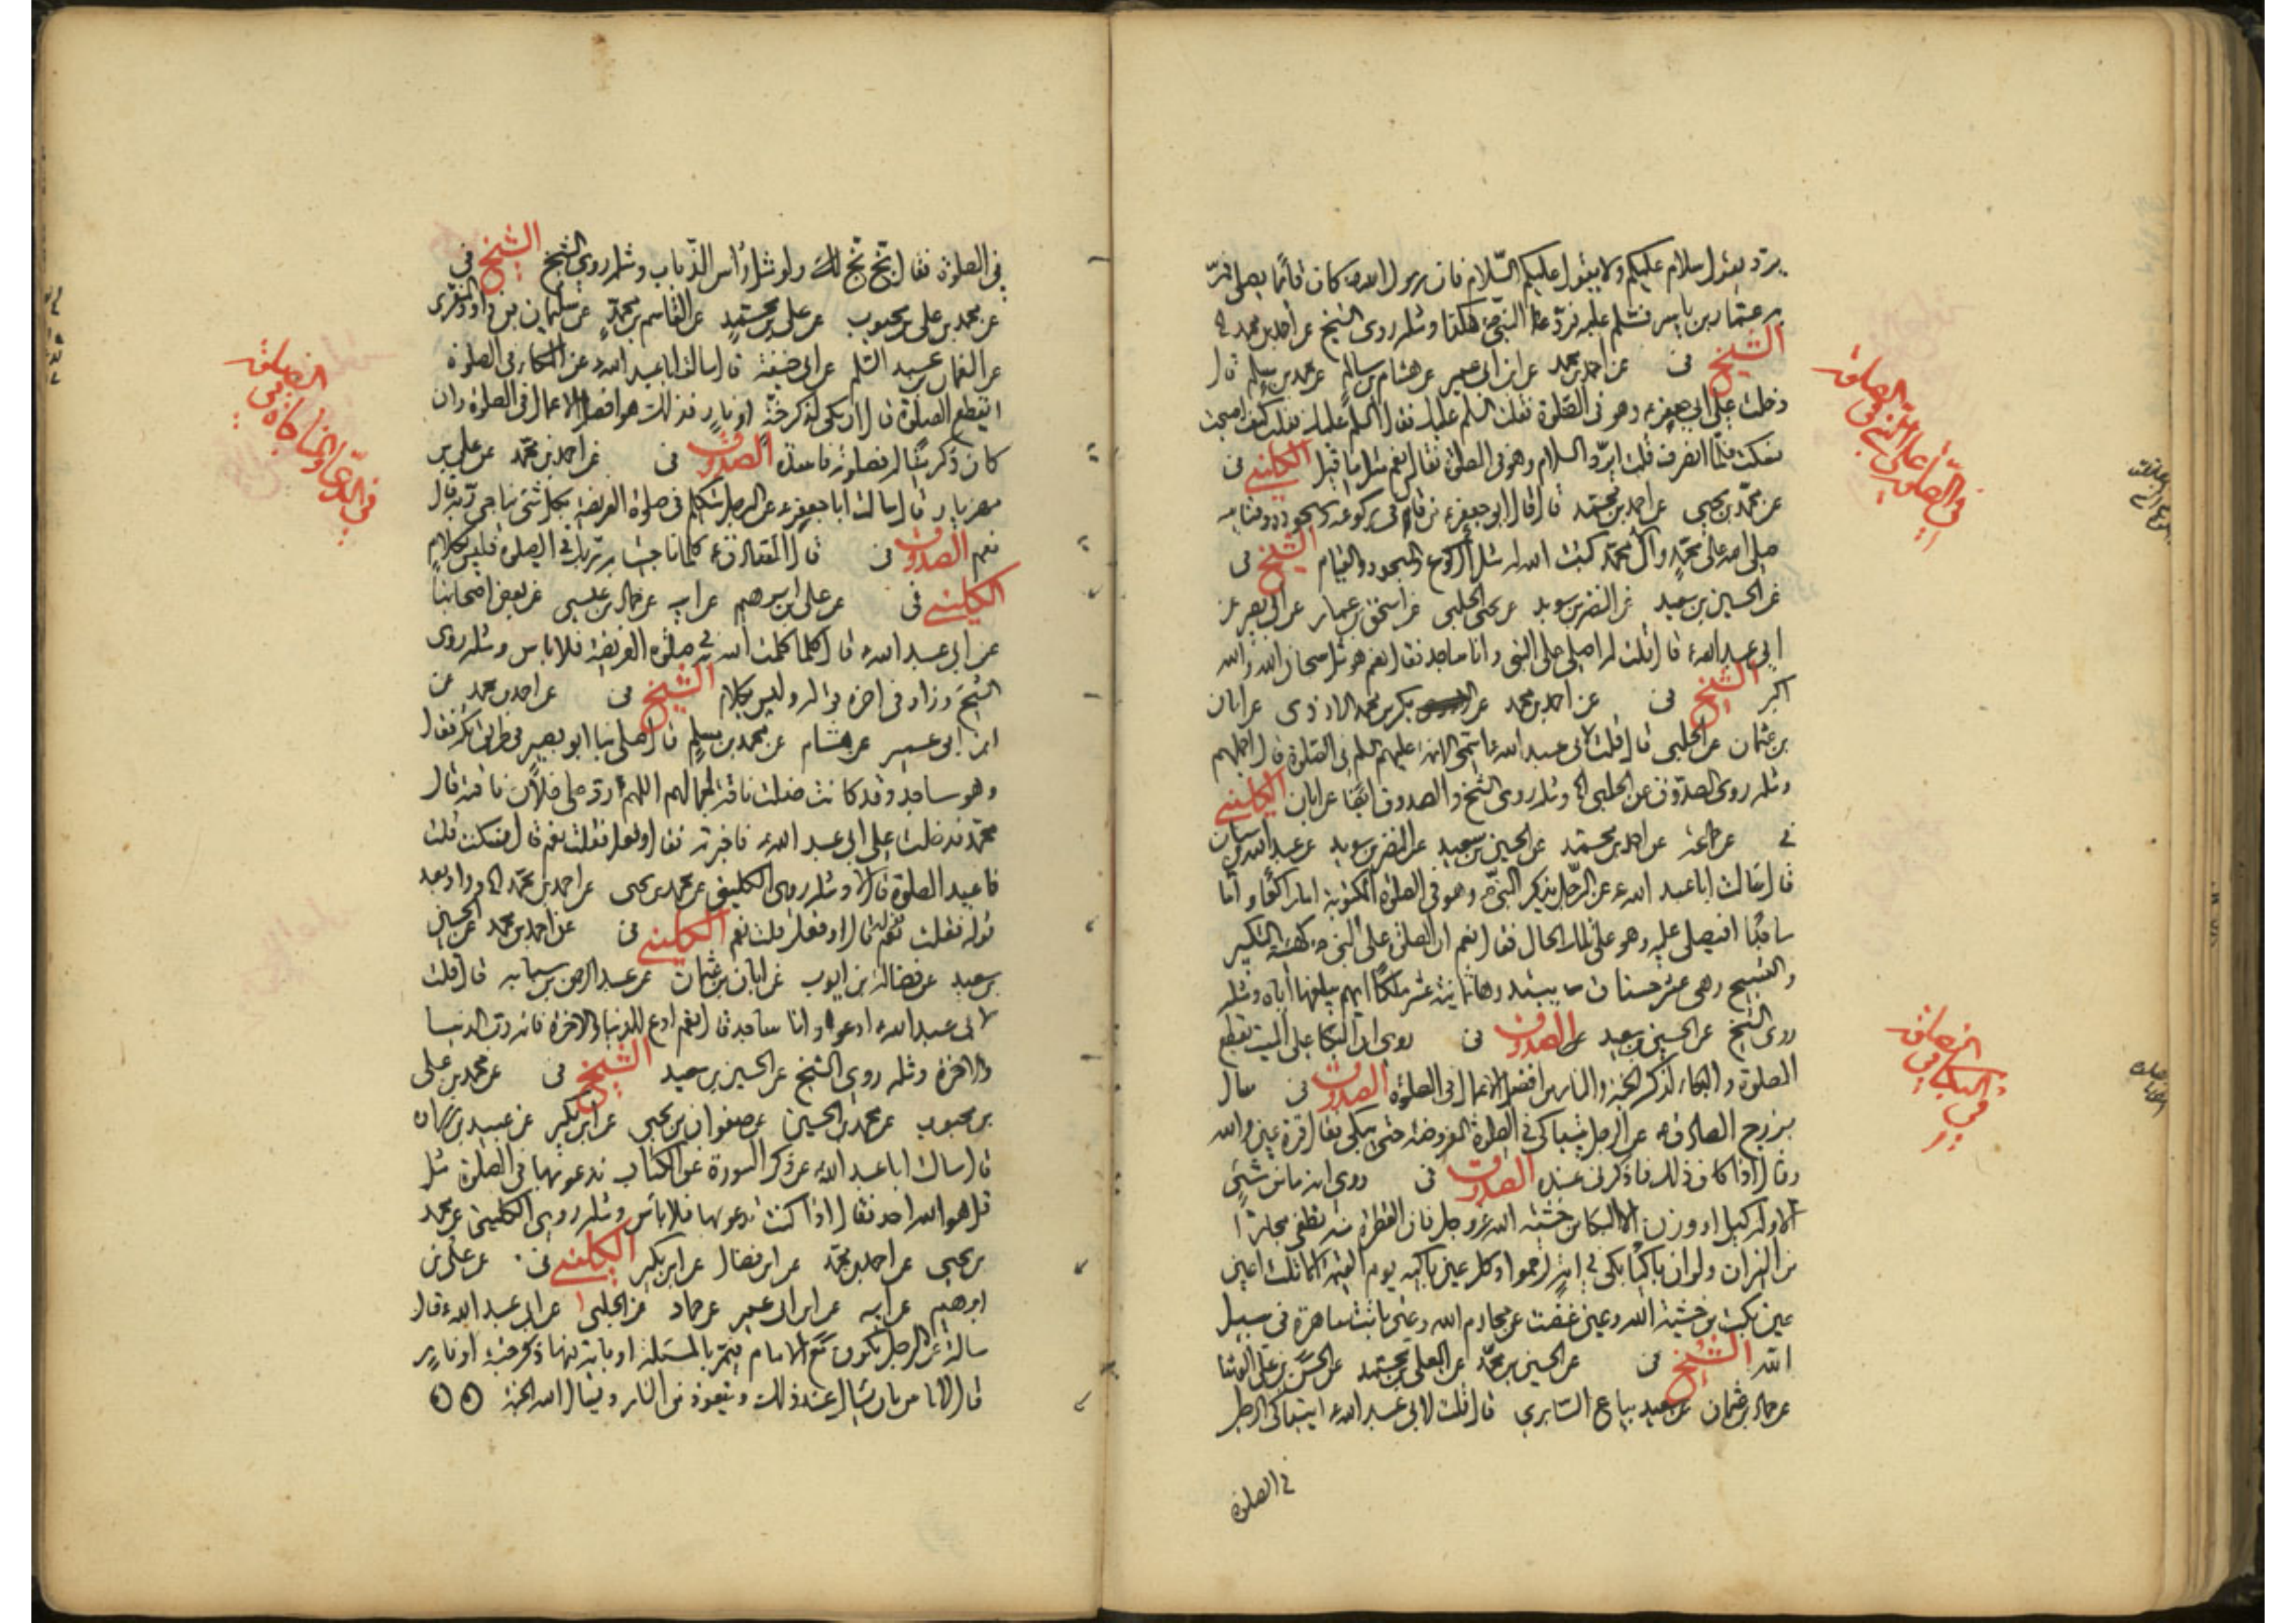 يرد يقول سلام عليكم ولا يقول عليكم السلام فان رسول الله ص كان قائما يصلي فمر
به عمار بن ياسر فسلم عليه فرد عليه النبي ص هكذا ومثله روى الشيخ عن احمد بن محمد
الشيخ في عن احمد بن محمد عن ابن ابي عمير عن هشام بن سالم عن محمد بن مسلم قال
دخلت على ابي جعفر ع وهو في الصلوة فقلت السلم عليك فقال السلم عليك فقلت كيف اصبحت
فسكت فلما انصرف قلت ايرد السلام وهو في الصلوة فقال نعم مثل ما قيل له الكليني في
عن محمد بن يحيى عن احمد بن محمد قال قال ابو جعفر ع من قال في ركوعه وسجوده وقيامه
صلى الله على محمد وآل محمد كتب الله له مثل الركوع والسجود والقيام الشيخ في
عن الحسين بن سعيد عن النضر بن سويد عن يحيى الحلبي عن اسحق بن عمار عن ابي بصير عن
ابي عبد الله ع قال قلت له اصلي على النبي وانا ساجد فقال نعم هو مثل سبحان الله والله
اكبر الشيخ في عن احمد بن محمد عن بكر بن محمد الازدي عن ابان
بن عثمان عن الحلبي قال قلت لابي عبد الله ع اسمي الائمة عليهم السلم في الصلوة قال اجملهم
ومثله روى الصدوق عن الحلبي ومثله روى الشيخ والصدوق ايضا عن ابان الكليني
في عن جماعة عن احمد بن محمد عن الحسين بن سعيد عن النضر بن سويد عن عبد الله بن سنان
قال سالت ابا عبد الله ع عن الرجل يذكر النبي ص وهو في الصلوة المكتوبة اما راكعا واما
ساجدا افيصلي عليه وهو على تلك الحال فقال نعم ان الصلوة على النبي ص كهيئة التكبير
والتسبيح وهي عشر حسنات يبتدرها ثمانية عشر ملكا ايهم يبلغها اياه ومثله
روى الشيخ عن الحسين بن سعيد الصدوق في روي ان البكا على الميت يقطع
الصلوة والبكاء لذكر الجنة والنار من افضل الاعمال في الصلوة الصدوق في سال
بزرج الصادق ع عن الرجل يتباكى في الصلوة المفروضة حتى يبكي فقال قرة عين والله
وقال اذا كان ذلك فاذكرني عنده الصدوق في روي انه ما من شيء
الا وله كيل او وزن الا البكا من خشية الله عز وجل فان القطرة منه تطفي بحارا
من النيران ولو ان باكيا بكى في امة لرحموا وكل عين باكية يوم القيمة الا ثلث اعين
عين بكت من خشية الله وعين غضت عن محارم الله وعين باتت ساهرة في سبيل
الله الشيخ في عن الحسين بن محمد عن المعلى بن محمد عن الحسن بن علي الوشا
عن حماد بن عثمان عن سعيد بياع السابري قال قلت لابي عبد الله ع ايتباكى الرجل
في الصلوة
في الصلوة على النبي في الصلوة
في البكا في الصلوة
في الصلوة فقال بخ بخ لك ولو مثل راس الذباب ومثله روى الشيخ الشيخ في
عن محمد بن علي بن محبوب عن علي بن محمد عن القاسم بن محمد عن سليمان بن داود المنقري
عن النعمان بن عبد السلم عن ابي حنيفة قال سالت ابا عبد الله ع عن البكاء في الصلوة
ايقطع الصلوة قال ان بكى لذكر جنة او نار فذلك هو افضل الاعمال في الصلوة وان
كان ذكر ميتا له فصلوته فاسدة الصدوق في عن احمد بن محمد عن علي بن
مهزيار قال سالت ابا جعفر ع عن الرجل يتكلم في صلوة الفريضة بكل شئ يناجي ربه قال
نعم الصدوق في قال الصادق ع كلما ناجيت به ربك في الصلوة فليس بكلام
الكليني في عن علي بن ابرهيم عن ابيه عن حماد بن عيسى عن بعض اصحابنا
عن ابي عبد الله ع قال كلما كلمت الله به في صلوة الفريضة فلا باس ومثله روى
الشيخ وزاد في اخره قوله وليس بكلام الشيخ في عن احمد بن محمد عن
ابن ابي عمير عن هشام عن محمد بن مسلم قال صلى بنا ابو بصير في طريق مكة فقال
وهو ساجد وقد كانت ضلت ناقة لجمالهم اللهم رد على فلان ناقته قال
محمد فدخلت على ابي عبد الله ع فاخبرته فقال وفعل فقلت نعم قال فسكت قلت
فاعيد الصلوة قال لا ومثله روى الكليني عن محمد بن يحيى عن احمد بن محمد وزاد بعد
قوله فقلت نعم قال وفعل قلت نعم الكليني في عن احمد بن محمد عن الحسين
بن سعيد عن فضالة بن ايوب عن ابان بن عثمان عن عبد الرحمن بن سيابه قال قلت
لابي عبد الله ع ادعو وانا ساجد قال نعم ادع للدنيا والاخرة فانه رب الدنيا
والاخرة ومثله روى الشيخ عن الحسين بن سعيد الشيخ في عن محمد بن علي
بن محبوب عن محمد بن الحسين عن صفوان بن يحيى عن ابن بكير عن عبيد بن زرارة
قال سالت ابا عبد الله ع عن ذكر السورة من الكتاب ندعو بها في الصلوة مثل
قل هو الله احد فقال اذا كنت تدعو بها فلا بأس ومثله روى الكليني عن محمد
بن يحيى عن احمد بن محمد عن ابن فضال عن ابن بكير الكليني في عن علي بن
ابرهيم عن ابيه عن ابن ابي عمير عن حماد عن الحلبي عن ابي عبد الله ع قال
سالته عن الرجل يكون مع الامام فيمر بالمسئلة او باية فيها ذكر جنة او نار
قال لا باس بان يسال عند ذلك ويتعوذ من النار ويسال الله الجنة
في الدعا والمناجاة في الصلوة